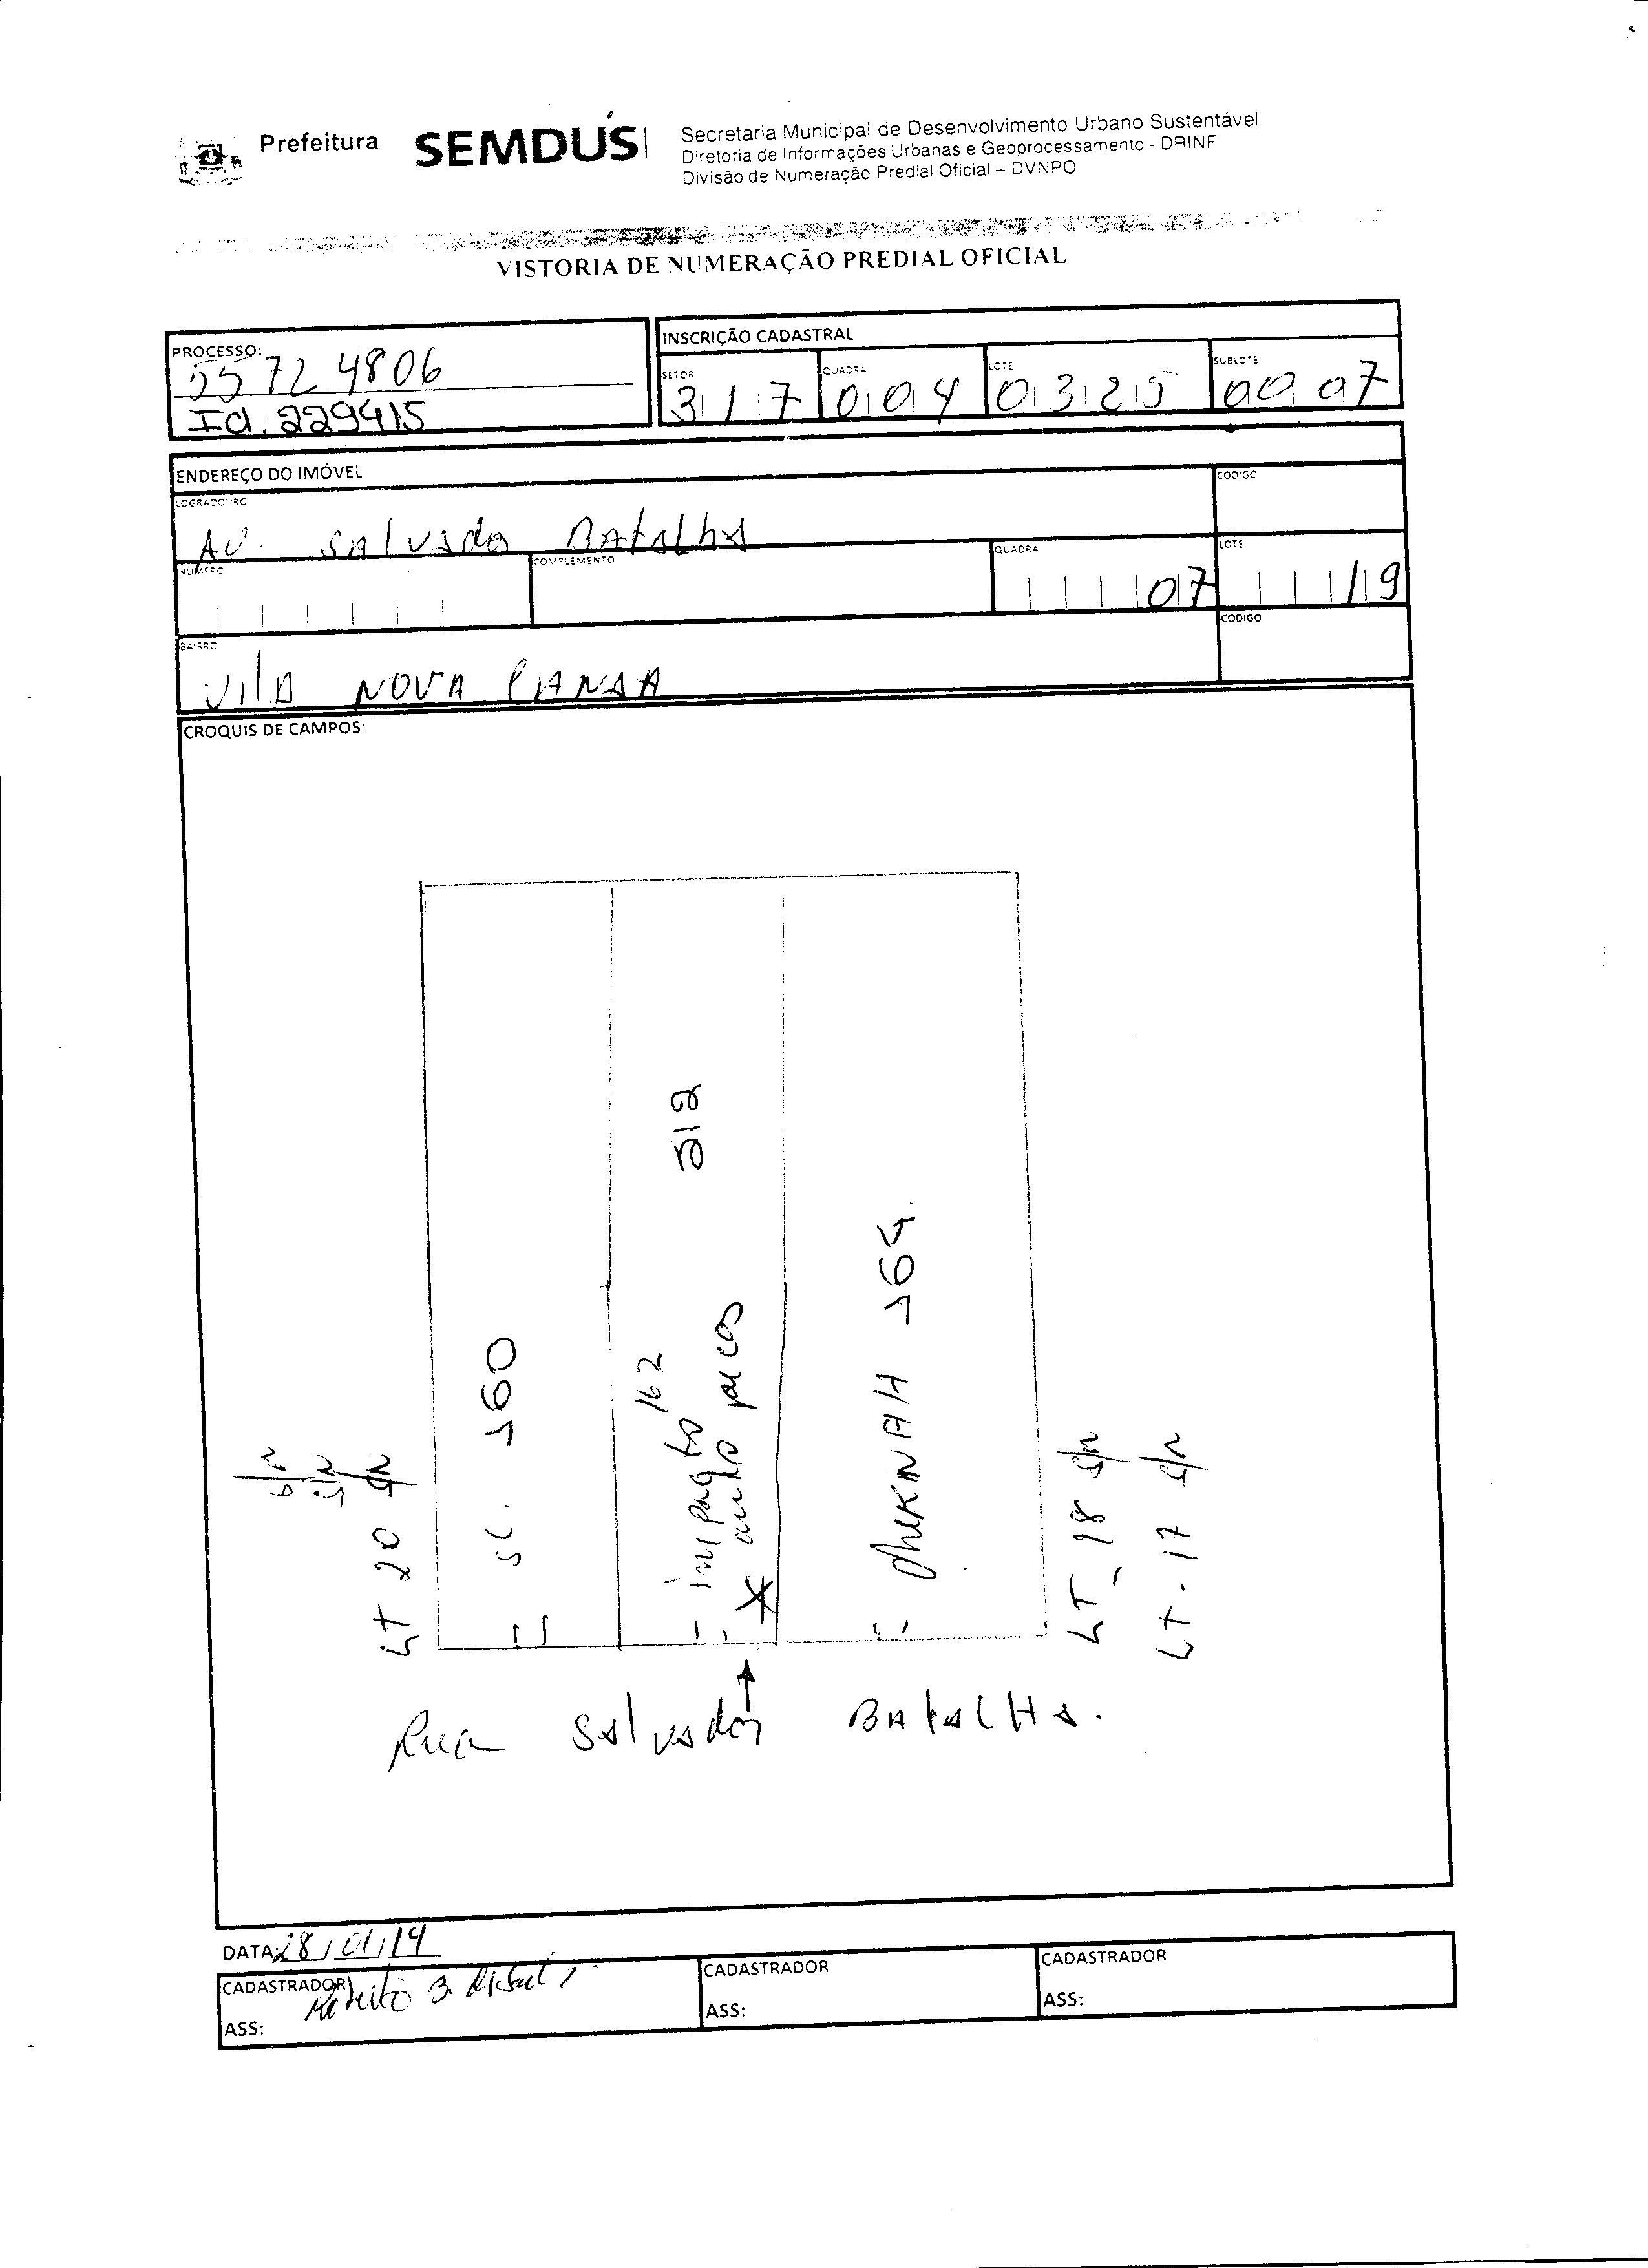 Prefeitura SEMDUS
Secretaria Municipal de Desenvolvimento Urbano Sustentável
Diretoria de Informações Urbanas e Geoprocessamento - DRINF
Divisão de Numeração Predial Oficial – DVNPO
VISTORIA DE NUMERAÇÃO PREDIAL OFICIAL
PROCESSO:
55724806
Id. 229415
INSCRIÇÃO CADASTRAL
SETOR QUADRA LOTE SUBLOTE
317 004 0325 0007
ENDEREÇO DO IMÓVEL
LOGRADOURO CODIGO
AV. SAlVAdor BAtAlhA
NUMERO COMPLEMENTO QUADRA LOTE
07 19
BAIRRO CODIGO
VilA NOVA CANAA
CROQUIS DE CAMPOS:
S/N
S/N
LT 20 S/N
SL. 160
impacto 162
auto peças
212
SheKINAH 164
LT 18 S/N
LT. 17 S/N
Rua SAlVAdor BAtAlHA.
DATA: 28/01/14
CADASTRADOR CADASTRADOR CADASTRADOR
ASS: ASS: ASS: